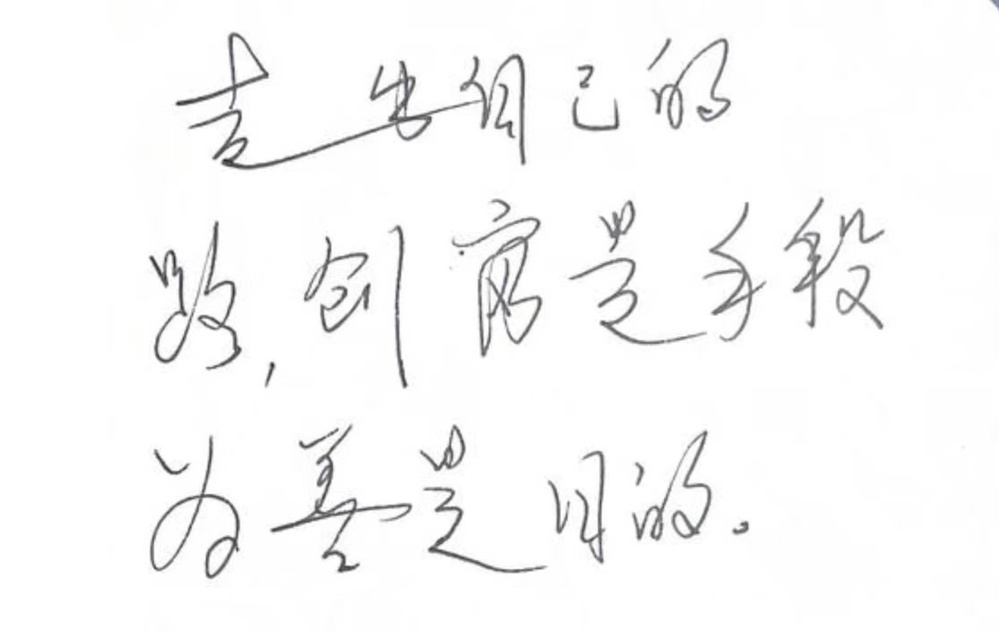 走出自己的
路,创商是手段
为善是目的。